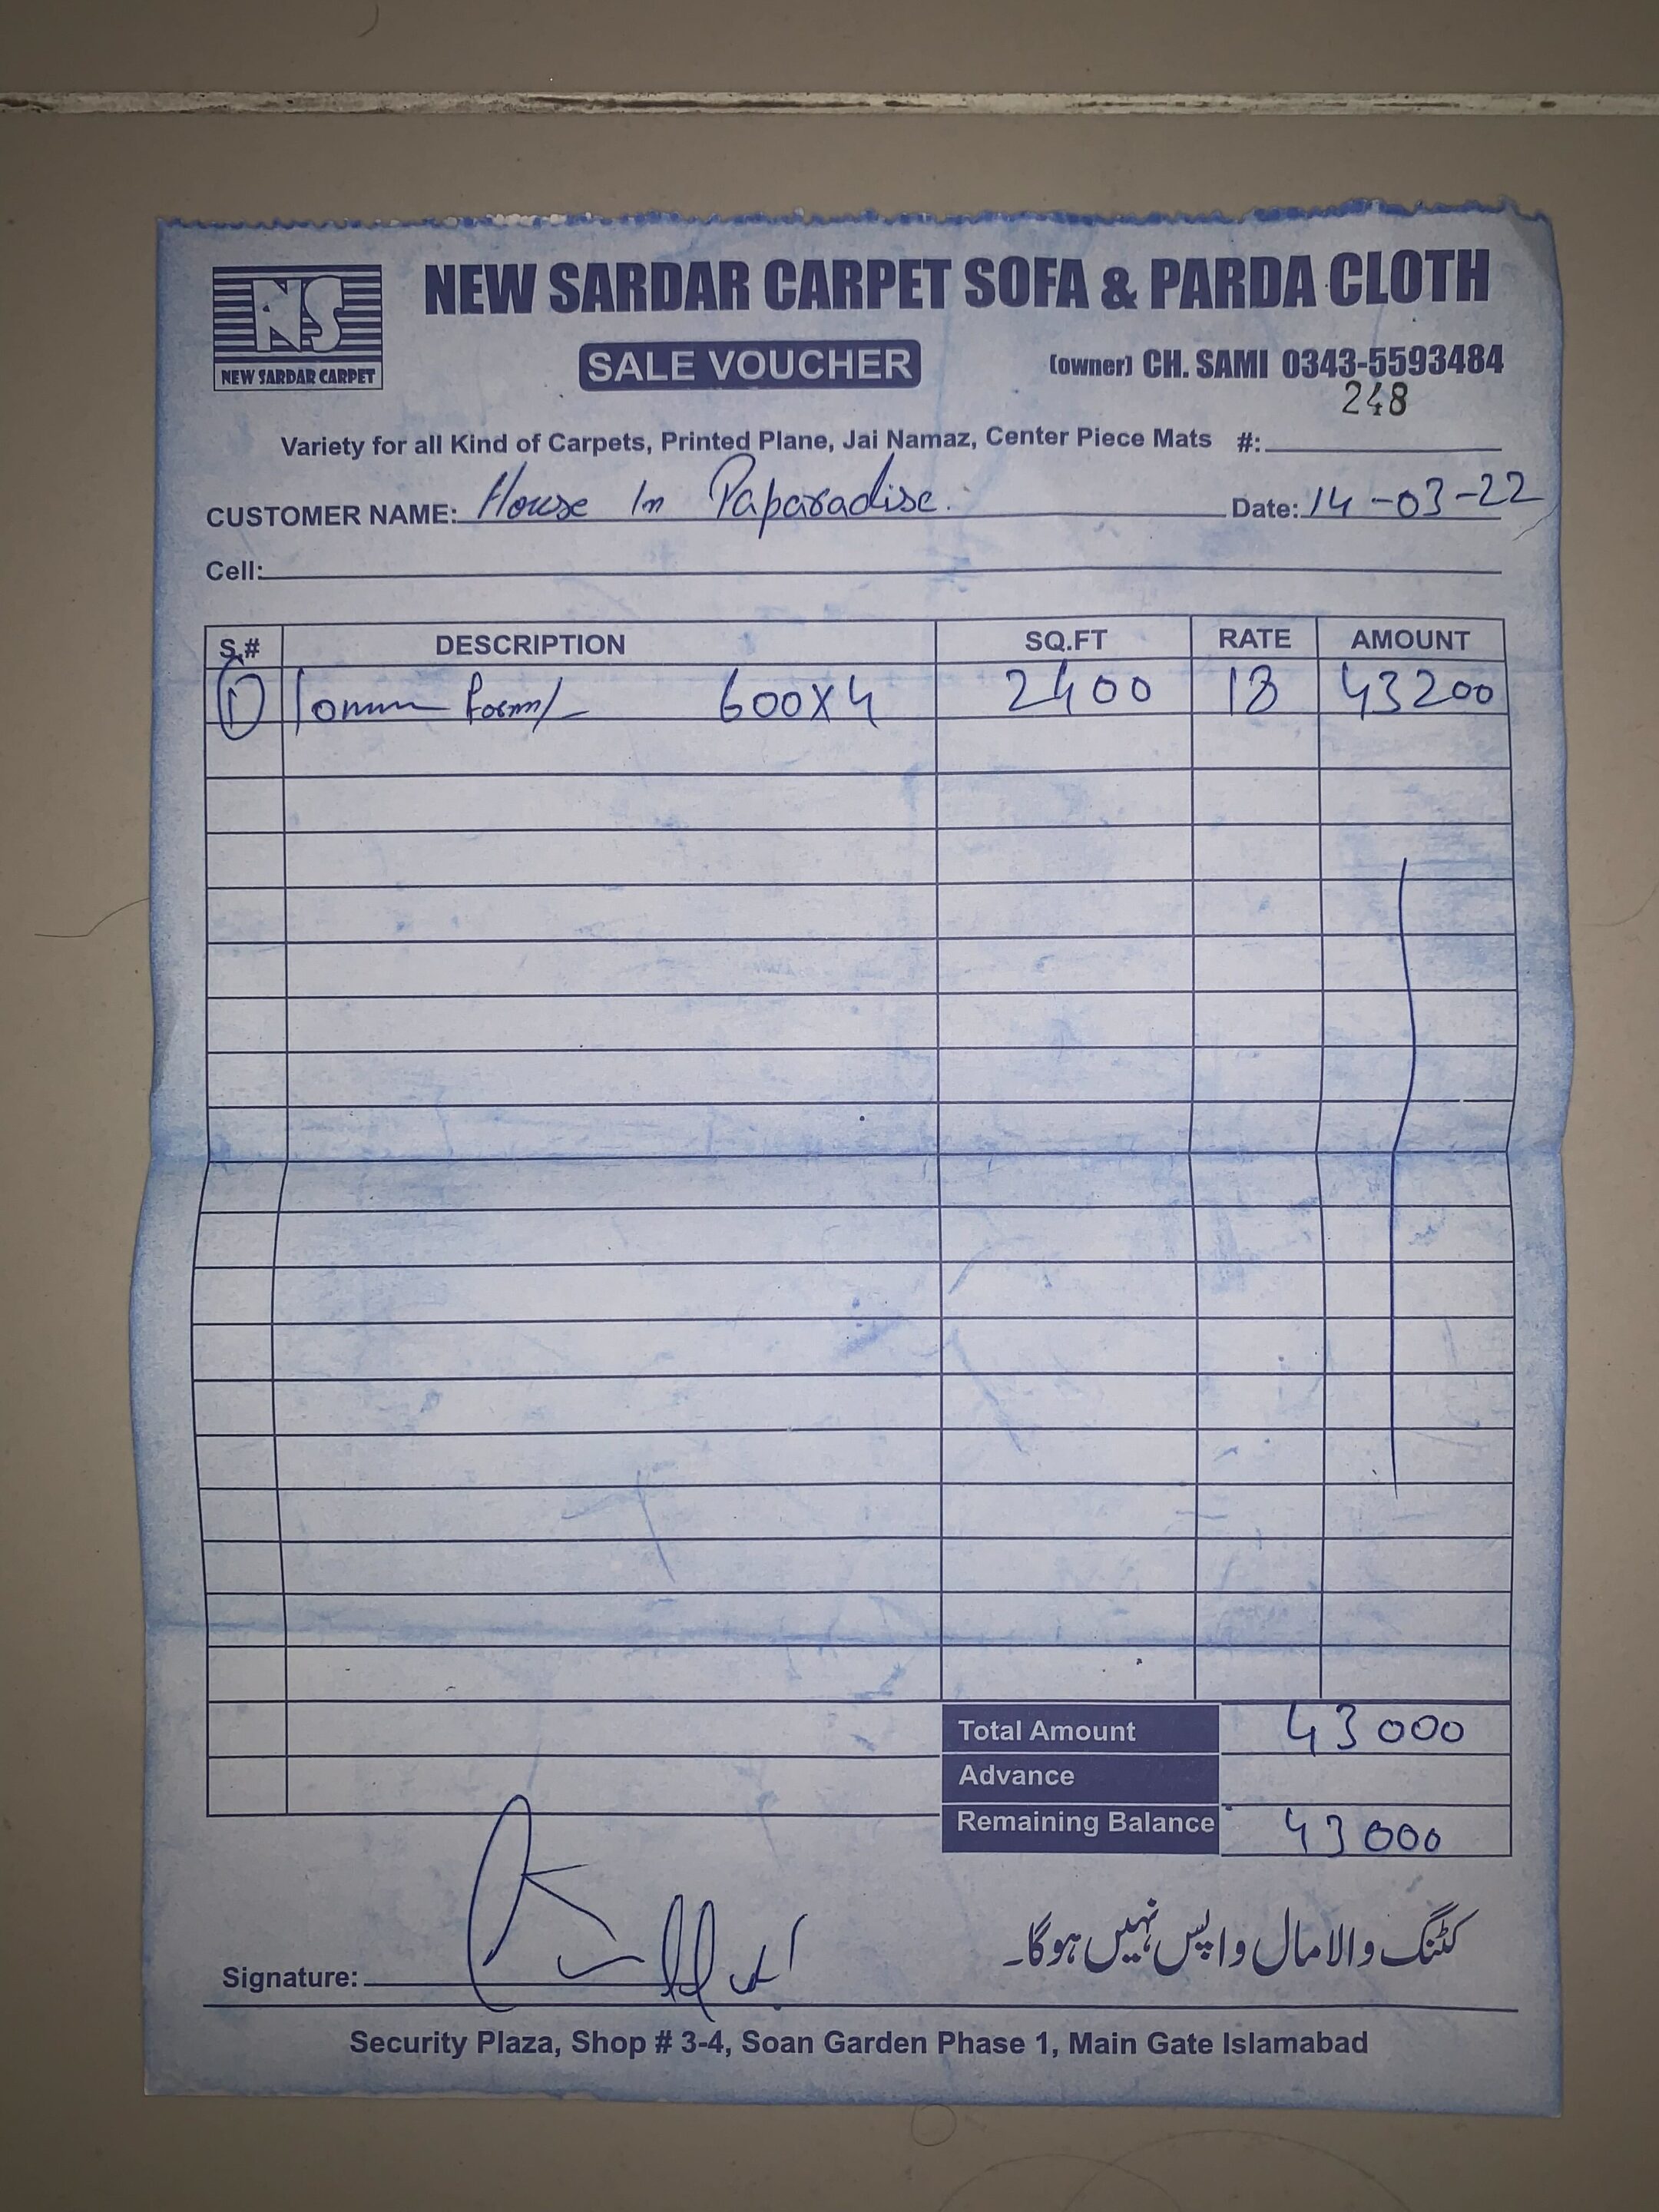 NS
NEW SARDAR CARPET
NEW SARDAR CARPET SOFA & PARDA CLOTH
SALE VOUCHER
(owner) CH. SAMI 0343-5593484
248
Variety for all Kind of Carpets, Printed Plane, Jai Namaz, Center Piece Mats #:
CUSTOMER NAME: House In Paparadise. Date: 14-03-22
Cell:
S.# DESCRIPTION SQ.FT RATE AMOUNT
1 10mm Form/- 600x4 2400 18 43200
Total Amount 43000
Advance
Remaining Balance 43000
کٹنگ والا مال واپس نہیں ہوگا۔
Signature:
Security Plaza, Shop # 3-4, Soan Garden Phase 1, Main Gate Islamabad